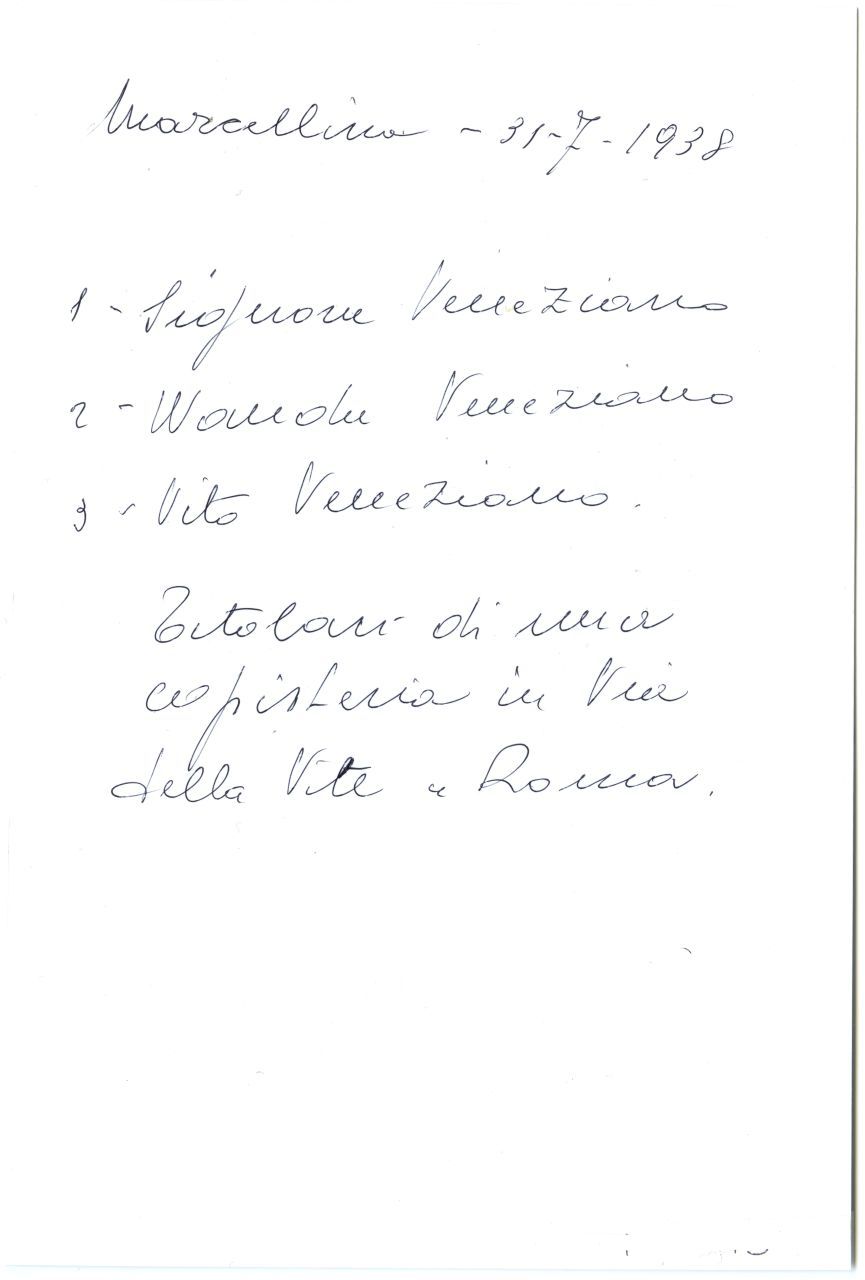 Marcellina - 31-7-1938
1 - Signora Veneziano
2 - Wanda Veneziano
3 - Vito Veneziano.
Titolari di una
copisteria in Via
della Vite a Roma.